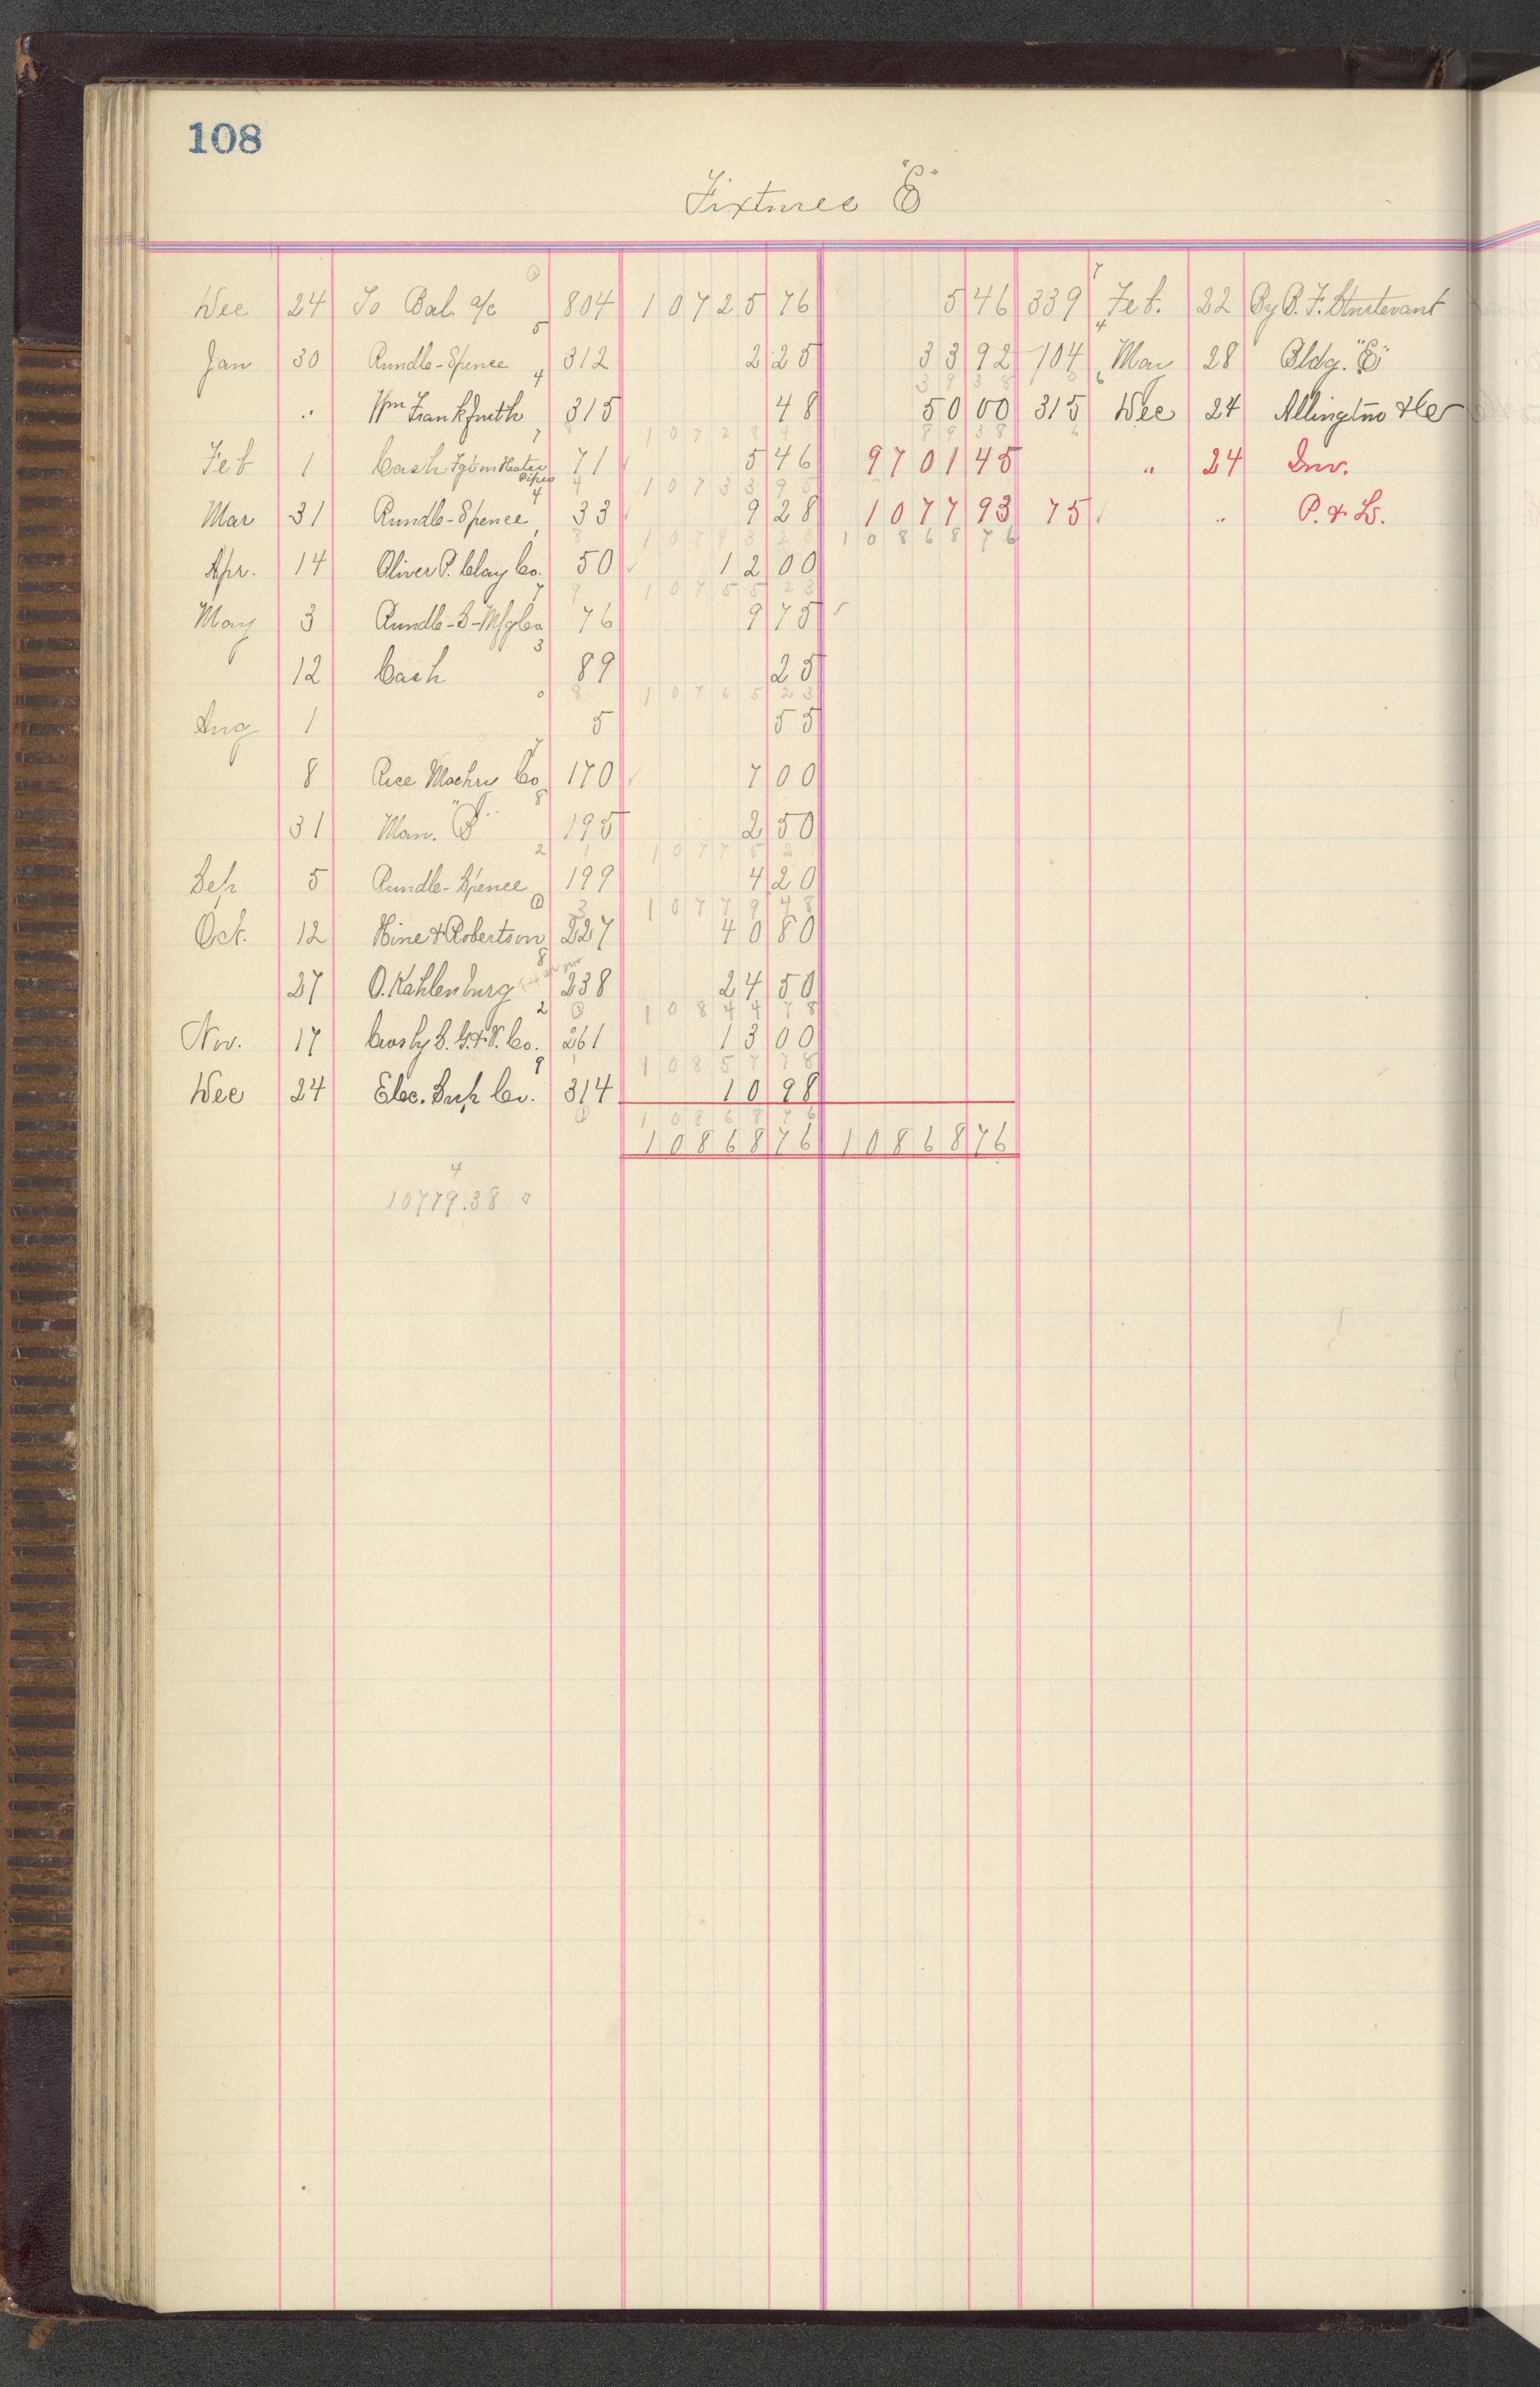 108
Fixtures "E"
Dec 24 To Bal. a/c 804 10725 76 5 46 339 Feb. 22 By B. F. Sturtevant
Jan 30 Rundle-Spence 312 2 25 33 92 104 Mar 28 Bldg. "E"
" Wm Frankfurth 315 48 50 00 315 Dec 24 Allington &
10728 4
Feb 1 Cash 71 5 46 9701 45 " 24 Inv.
10733 95
Mar 31 Rundle-Spence 33 9 28 1077 93 75 " P. & L.
10743 23 10868 76
Apr. 14 Oliver P. Clay Co. 50 12 00
10755 23
May 3 Rundle-S-Mfg Co 76 9 75
12 Cash 89 25
10765 23
Aug 1 5 55
8 Rice Machry Co 170 7 00
31 Man. 195 2 50
Sep 5 Rundle-Spence 199 4 20
10779 48
Oct. 12 Hine & Robertson 227 40 80
27 O. Kahlenburg 238 24 50
10844 78
Nov. 17 Crosby S. G. & V. Co. 261 13 00
10857 78
Dec 24 Elec. Sup Co. 314 10 98
10868 76
10868 76 10868 76
10779.38